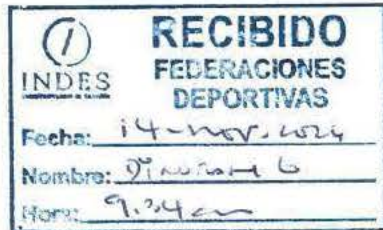 RECIBIDO
FEDERACIONES
DEPORTIVAS
INDES
Fecha: 14-nov.2024
Nombre:
Hora: 9.34am